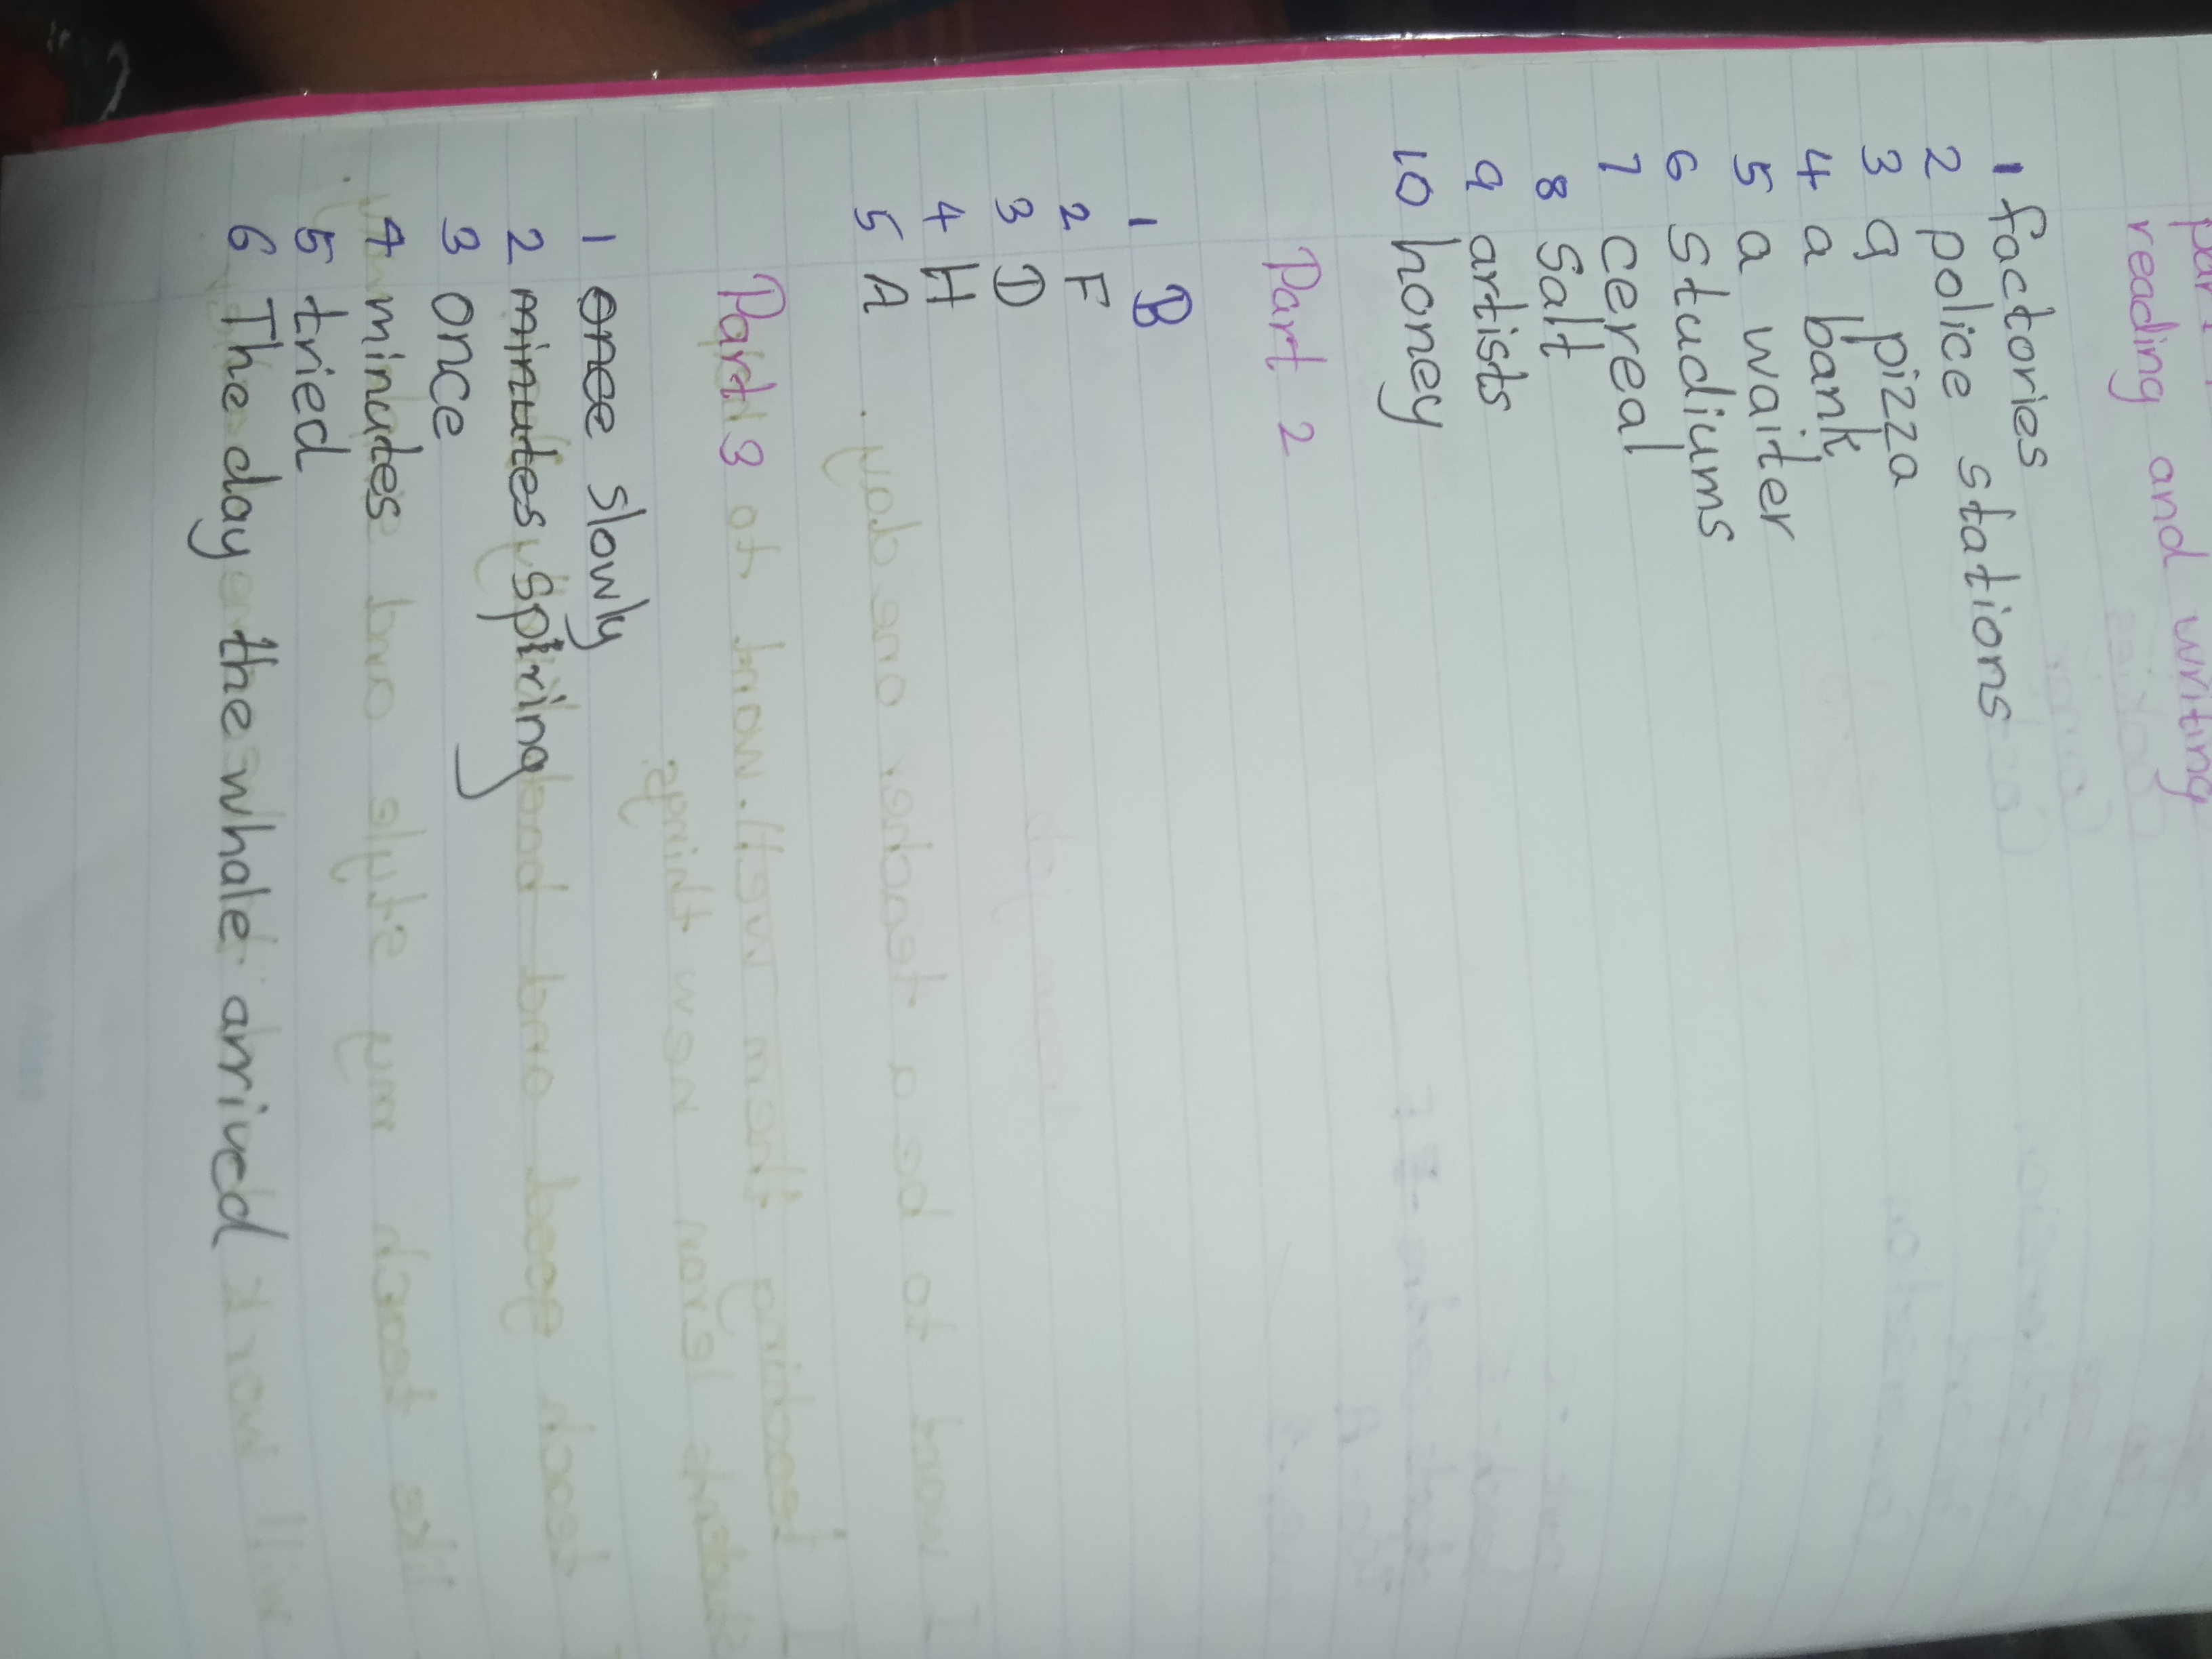 part
reading and writing
1 factories
2 police stations
3 a pizza
4 a bank
5 a waiter
6 stadiums
7 cereal
8 salt
9 artists
10 honey
Part 2
1 B
2 F
3 D
4 H
5 A
Part 3
1 once slowly
2 minutes spring
3 once
4 minutes
5 tried
6 The day the whale arrived